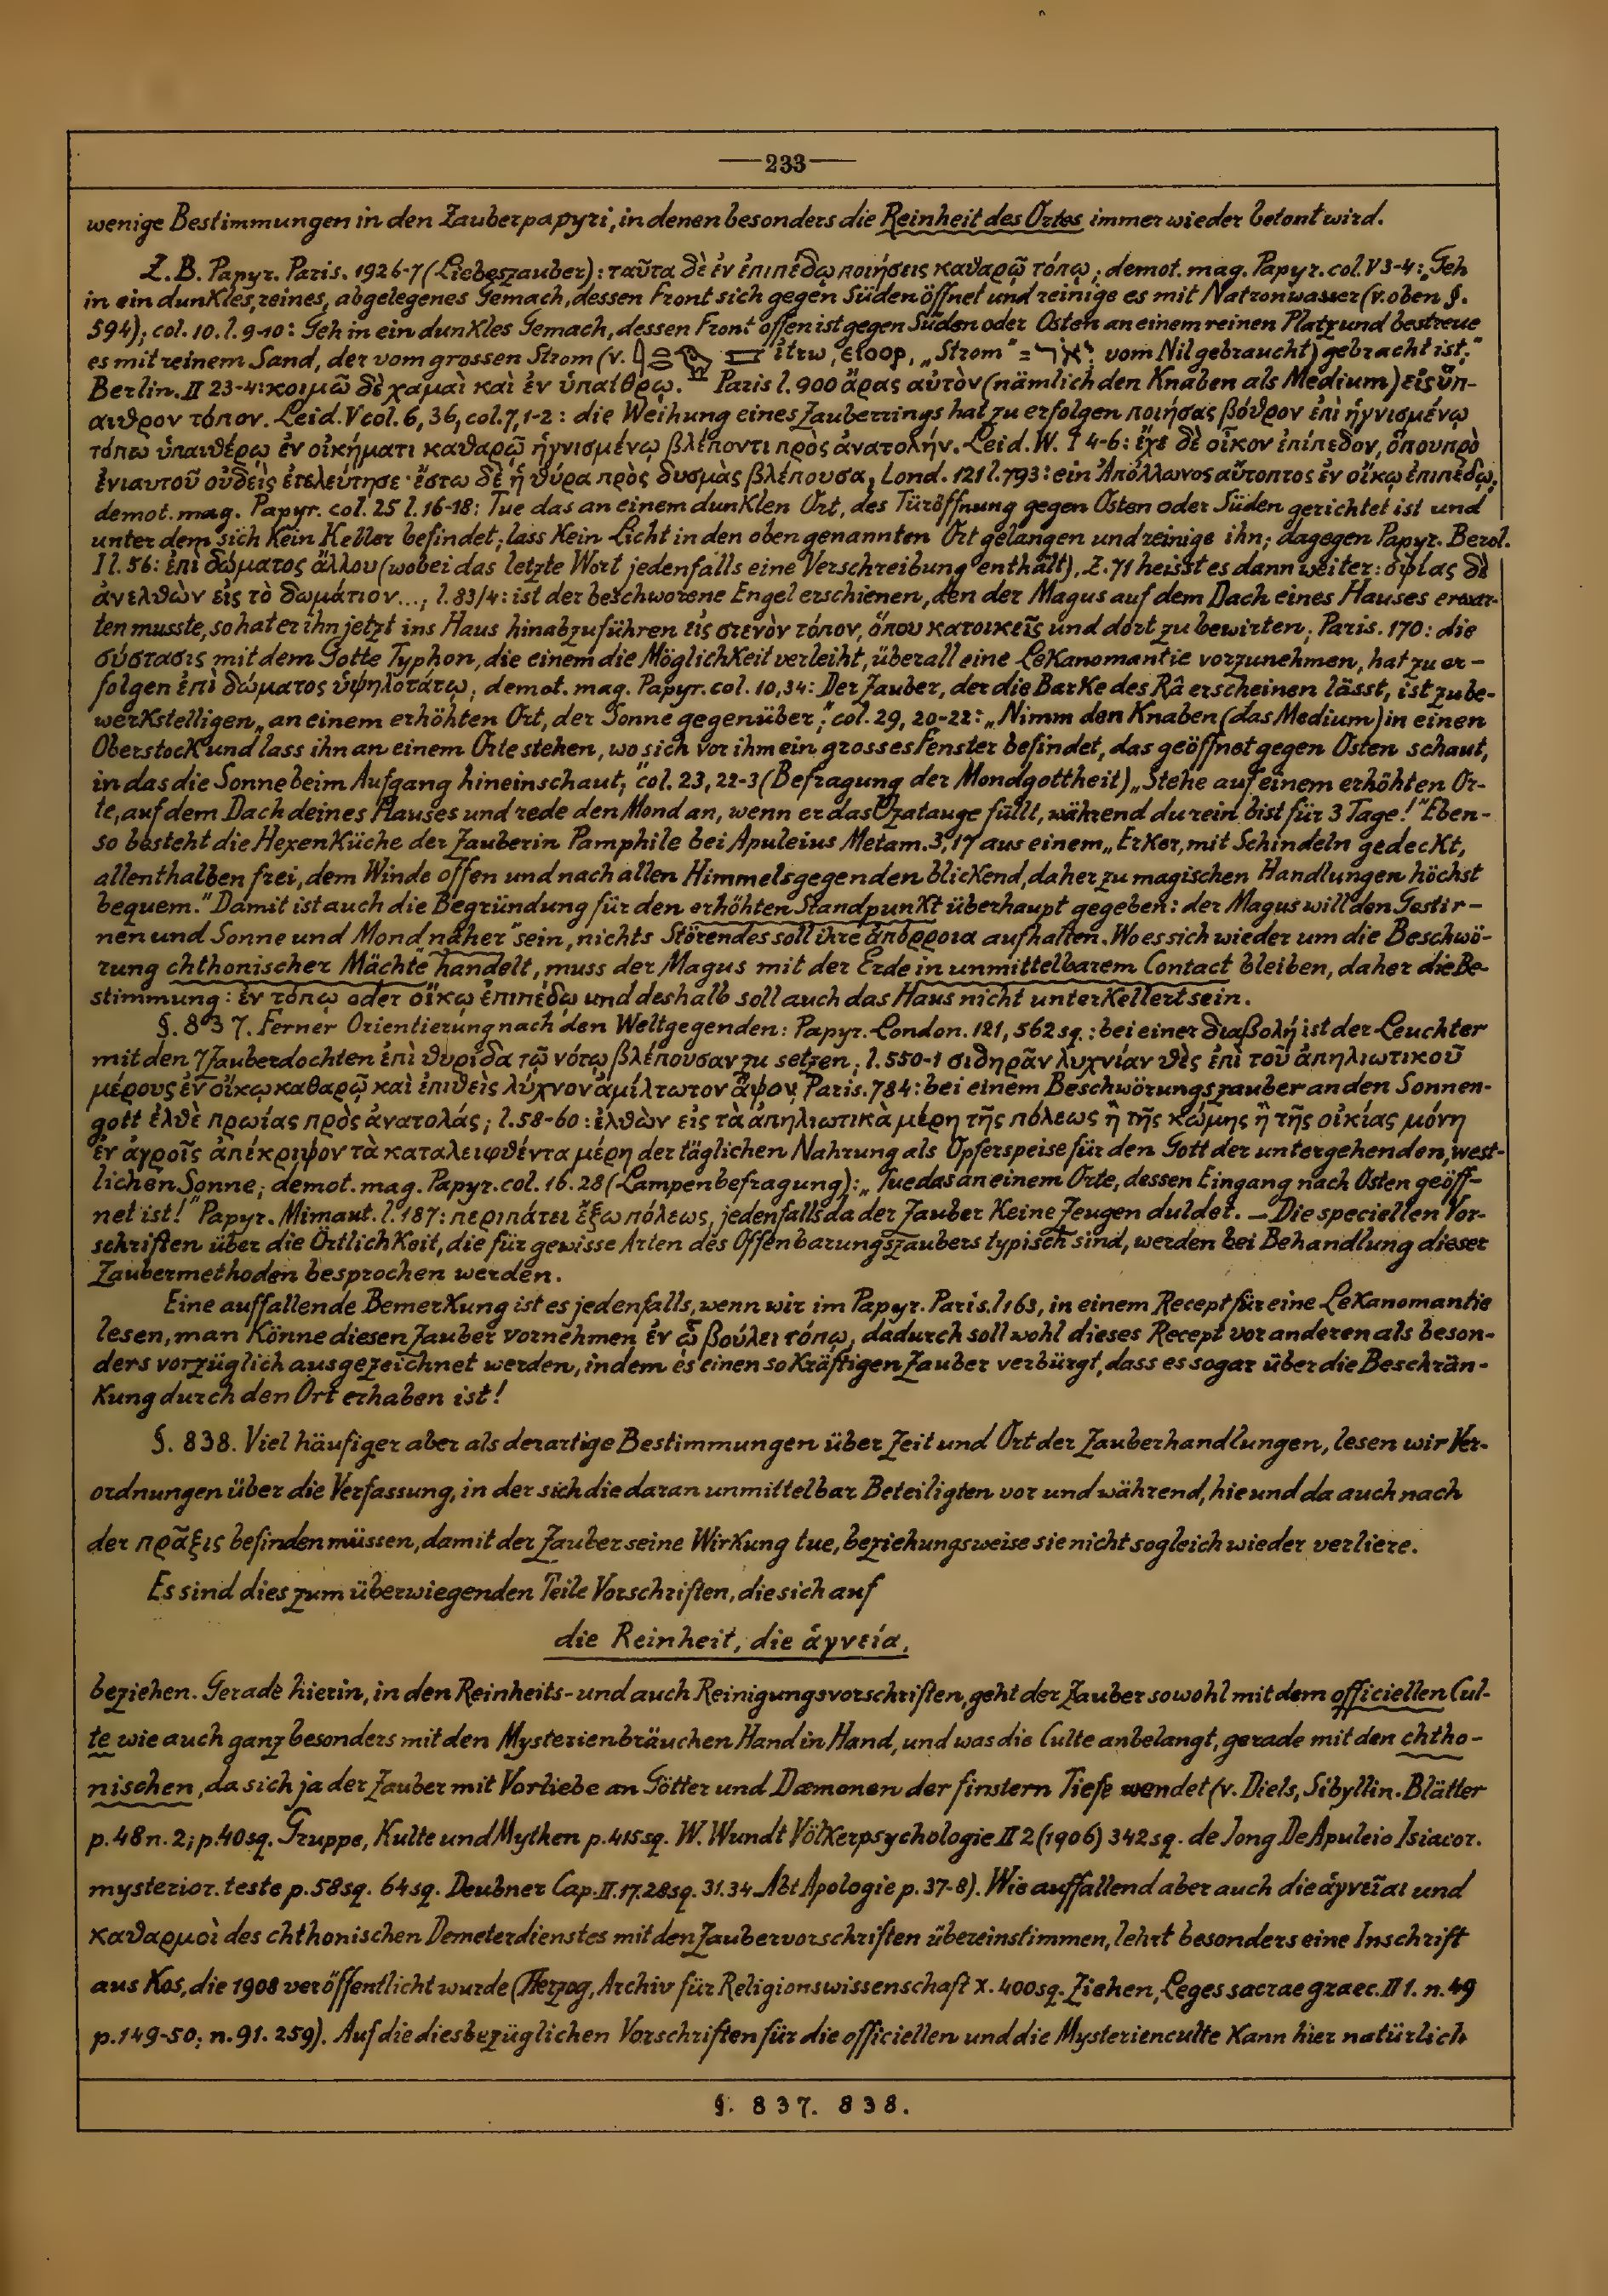 —233—
wenige Bestimmungen in den Zauberpapyri, in denen besonders die Reinheit des Ortes immer wieder betont wird.
Z. B. Papyr. Paris. 1926-7 (Liebeszauber): ταῦτα δὲ ἐν ἐπιπέδῳ ποιήσεις καθαρῷ τόπῳ; demot. mag. Papyr. col. V 3-4: „Geh
in ein dunkles, reines, abgelegenes Gemach, dessen Front sich gegen Süden öffnet und reinige es mit Natronwasser (v. oben §.
594); col. 10. l. 9-10: Geh in ein dunkles Gemach, dessen Front offen ist gegen Süden oder Osten an einem reinen Platz und bestreue
es mit reinem Sand, der vom grossen Strom (v. ἰτεω, ⲉⲓⲟⲟⲣ, „Strom" = יְאֹר vom Nil gebraucht) gebracht ist."
Berlin. II 23-4: κοιμῶ δὲ χαμαὶ καὶ ἐν ὑπαίθρῳ. — Paris l. 900 ἄρας αὐτὸν (nämlich den Knaben als Medium) εἰς ὕπ-
αιθρον τόπον. Leid. V col. 6, 36, col. 7, 1-2: die Weihung eines Zauberrings hat zu erfolgen ποιήσας βόθρον ἐπὶ ἡγνισμένῳ
τόπω ὑπαιθέρῳ ἐν οἰκήματι καθαρῷ ἡγνισμένῳ βλέποντι πρὸς ἀνατολήν. Leid. W. I 4-6: ἔχε δὲ οἶκον ἐπίπεδον, ὅπου πρὸ
ἐνιαυτοῦ οὐδεὶς ἐτελεύτησε· ἔστω δὲ ἡ θύρα πρὸς δυσμὰς βλέπουσα, Lond. 121 l. 793: ein Ἀπόλλωνος αὔτοπτος ἐν οἴκῳ ἐπιπέδῳ;
demot. mag. Papyr. col. 25 l. 16-18: Tue das an einem dunklen Ort, des Türöffnung gegen Osten oder Süden gerichtet ist und
unter dem sich kein Keller befindet; lass kein Licht in den oben genannten Ort gelangen und reinige ihn; dagegen Papyr. Berol.
I l. 56: ἐπὶ δώματος ἄλλου (wobei das letzte Wort jedenfalls eine Verschreibung enthält), Z. 71 heisst es dann weiter: ὀψίας δὲ
ἀνελθὼν εἰς τὸ δωμάτιον...; l. 83/4: ist der beschworene Engel erschienen, den der Magus auf dem Dach eines Hauses erwar-
ten musste, so hat er ihn jetzt ins Haus hinabzuführen εἰς στενὸν τόπον, ὅπου κατοικεῖς und dort zu bewirten; Paris. 170: die
σύστασις mit dem Gotte Typhon, die einem die Möglichkeit verleiht, überall eine Lekanomantie vorzunehmen, hat zu er-
folgen ἐπὶ δώματος ὑψηλοτάτῳ; demot. mag. Papyr. col. 10, 34: Der Zauber, der die Barke des Râ erscheinen lässt, ist zu be-
werkstelligen „an einem erhöhten Ort, der Sonne gegenüber;" col. 29, 20-22: „Nimm den Knaben (das Medium) in einen
Oberstock und lass ihn an einem Orte stehen, wo sich vor ihm ein grosses Fenster befindet, das geöffnet gegen Osten schaut,
in das die Sonne beim Aufgang hineinschaut;" col. 23, 22-3 (Befragung der Mondgottheit) „Stehe auf einem erhöhten Or-
te, auf dem Dach deines Hauses und rede den Mond an, wenn er das Uzatauge füllt, während du rein bist für 3 Tage!" Eben-
so besteht die Hexenküche der Zauberin Pamphile bei Apuleius Metam. 3, 17 aus einem „Erker, mit Schindeln gedeckt,
allenthalben frei, dem Winde offen und nach allen Himmelsgegenden blickend, daher zu magischen Handlungen höchst
bequem." Damit ist auch die Begründung für den erhöhten Standpunkt überhaupt gegeben: der Magus will den Gestir-
nen und Sonne und Mond „näher" sein, nichts Störendes soll ihre ἀπόρροια aufhalten. Wo es sich wieder um die Beschwö-
rung chthonischer Mächte handelt, muss der Magus mit der Erde in unmittelbarem Contact bleiben, daher die Be-
stimmung: ἐν τόπῳ oder οἴκῳ ἐπιπέδῳ und deshalb soll auch das Haus nicht unterkellert sein.
§. 837. Ferner Orientierung nach den Weltgegenden: Papyr. London. 121, 562 sq.: bei einer διαβολή ist der Leuchter
mit den 7 Zauberdochten ἐπὶ θυρίδα τῷ νότῳ βλέπουσαν zu setzen; l. 550-1 σιδηρᾶν λυχνίαν θὲς ἐπὶ τοῦ ἀπηλιωτικοῦ
μέρους ἐν οἴκῳ καθαρῷ καὶ ἐπιθεὶς λύχνον ἀμίλτωτον ἅψον, Paris. 784: bei einem Beschwörungszauber an den Sonnen-
gott ἐλθὲ πρωίας πρὸς ἀνατολάς; l. 58-60: ἐλθὼν εἰς τὰ ἀπηλιωτικὰ μέρη τῆς πόλεως ἢ τῆς κώμης ἢ τῆς οἰκίας μόνη
ἐν ἀγροῖς ἀπέκριψον τὰ καταλειφθέντα μέρη der täglichen Nahrung als Opferspeise für den Gott der untergehenden, west-
lichen Sonne; demot. mag. Papyr. col. 16. 28 (Lampenbefragung): „Tue das an einem Orte, dessen Eingang nach Osten geöff-
net ist!" Papyr. Mimaut. l. 187: περιπάτει ἔξω πόλεως, jedenfalls da der Zauber keine Zeugen duldet. — Die speciellen Vor-
schriften über die Örtlichkeit, die für gewisse Arten des Offenbarungszaubers typisch sind, werden bei Behandlung dieser
Zaubermethoden besprochen werden.
Eine auffallende Bemerkung ist es jedenfalls, wenn wir im Papyr. Paris. l 163, in einem Recept für eine Lekanomantie
lesen, man könne diesen Zauber vornehmen ἐν ᾧ βούλει τόπῳ, dadurch soll wohl dieses Recept vor anderen als beson-
ders vorzüglich ausgezeichnet werden, indem es einen so kräftigen Zauber verbürgt, dass es sogar über die Beschrän-
kung durch den Ort erhaben ist!
§. 838. Viel häufiger aber als derartige Bestimmungen über Zeit und Ort der Zauberhandlungen, lesen wir Ver-
ordnungen über die Verfassung, in der sich die daran unmittelbar Beteiligten vor und während, hie und da auch nach
der πρᾶξις befinden müssen, damit der Zauber seine Wirkung tue, beziehungsweise sie nicht sogleich wieder verliere.
Es sind dies zum überwiegenden Teile Vorschriften, die sich auf
die Reinheit, die ἁγνεία,
beziehen. Gerade hierin, in den Reinheits- und auch Reinigungsvorschriften, geht der Zauber sowohl mit dem officiellen Cul-
te wie auch ganz besonders mit den Mysterienbräuchen Hand in Hand, und was die Culte anbelangt, gerade mit den chtho-
nischen, da sich ja der Zauber mit Vorliebe an Götter und Dæmonen der finstern Tiefe wendet (v. Diels, Sibyllin. Blätter
p. 48 n. 2; p. 40 sq. Gruppe, Kulte und Mythen p. 415 sq. W. Wundt Völkerpsychologie II 2 (1906) 342 sq. de Jong De Apuleio Isiacor.
mysterior. teste p. 58 sq. 64 sq. Deubner Cap. II. 17. 28 sq. 31. 34 Abt Apologie p. 37-8). Wie auffallend aber auch die ἁγνεῖαι und
καθαρμοὶ des chthonischen Demeterdienstes mit den Zaubervorschriften übereinstimmen, lehrt besonders eine Inschrift
aus Kos, die 1908 veröffentlicht wurde (Herzog, Archiv für Religionswissenschaft X. 400 sq. Ziehen, Leges sacrae graec. II 1. n. 49
p. 149-50; n. 91. 259). Auf die diesbezüglichen Vorschriften für die officiellen und die Mysterienculte kann hier natürlich
§. 837. 838.